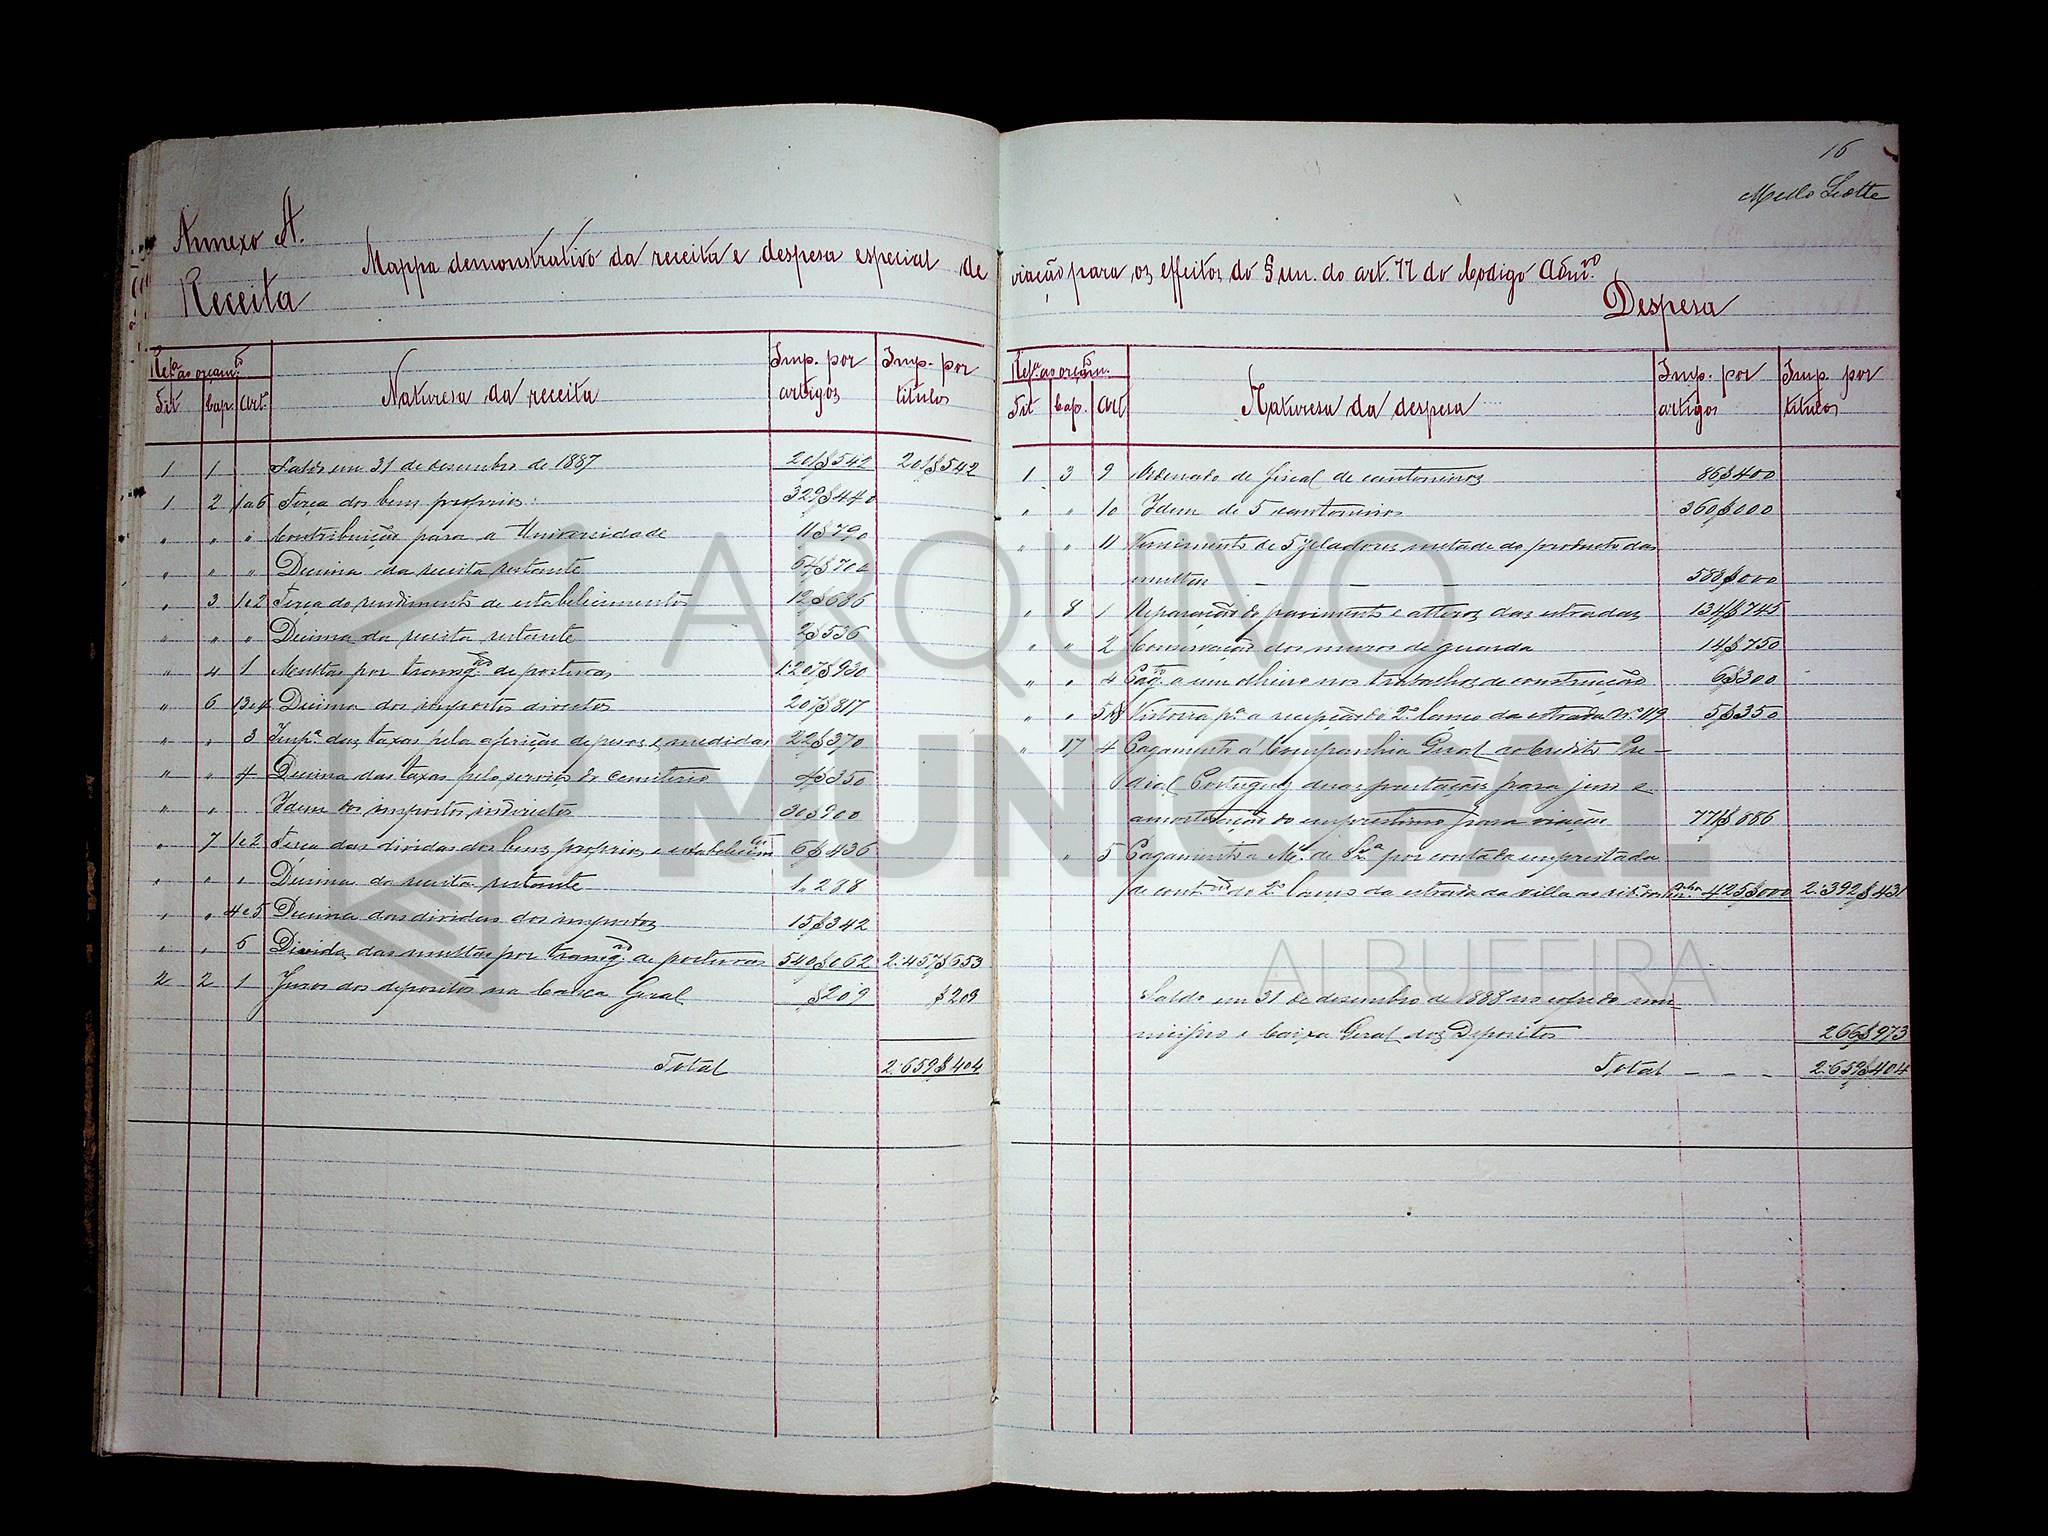 16
Mello Leotte
Annexo A.
Mappa demonstrativo da receita e despesa especial de viação para os effeitos do § un. do art. 77 do Codigo Admvo
Receita
Refa ao orçamto
Tit Cap. Art.
Naturesa da receita
Imp. por artigos
Imp. por titulos
1 1 Saldo em 31 de desembro de 1887 201$542 201$542
1 2 1a6 Terça dos bens proprios: 329$440
" " " Contribuição para a Universidade 11$790
" " " Decima da receita restante 64$700
" 3 1e2 Terça do rendimento de estabelecimentos 12$686
" " " Decima da receita restante 2$536
" 4 1 Multas por transgões de posturas 1:207$930
" 6 1,3e4 Decima dos impostos directos 207$817
" " 3 Impa das taxas pela aferição de pesos e medidas 22$370
" " 4 Decima das taxas pelo serviço do cemiterio 4$350
" " Idem dos impostos indirectos 30$900
" 7 1e2 Terça das dividas dos bens proprios e estabelecimtos 6$436
" " " Decima da receita restante 1"288
" " 4e5 Decima das dividas dos impostos 15$342
" " 5 Divida das multas por transgões de posturas 540$062 2:457$653
2 2 1 Juros dos depositos na Caixa Geral $209 $209
Total 2:659$404
Despesa
Refa ao orçam.to
Tit Cap. Art
Naturesa da despesa
Imp. por artigos
Imp. por titulos
1 3 9 Ordenado de fiscal de cantoneiros 86$400
" " 10 Idem de 5 cantoneiros 360$000
" " 11 Vencimento de 5 zeladores metade do producto das
multas — — 588$000
" 8 1 Reparação do pavimento e atteros das estradas 134$745
" " 2 Conservação dos muros de guarda 14$750
" " 4 Pagto a um olheiro nos trabalhos de construcção 6$300
" " 5 Vistoria pa a recepção do 2o lanço da estrada No 119 5$350
" 17 4 Pagamento á Companhia Geral do Credito Pre-
dial Portuguez duas prestações para juro e
amortisação do emprestimo para viação 771$886
" 5 Pagamento a Ml. de Sza por conta da empreitada
de contão do 2o lanço da estrada da villa ao sitio 425$000 2:392$431
Saldo em 31 de desembro de 1888 no cofre do mu-
nicipio e Caixa Geral dos Depositos 266$973
Total - - - 2:659$404
ARQUIVO
MUNICIPAL
ALBUFEIRA